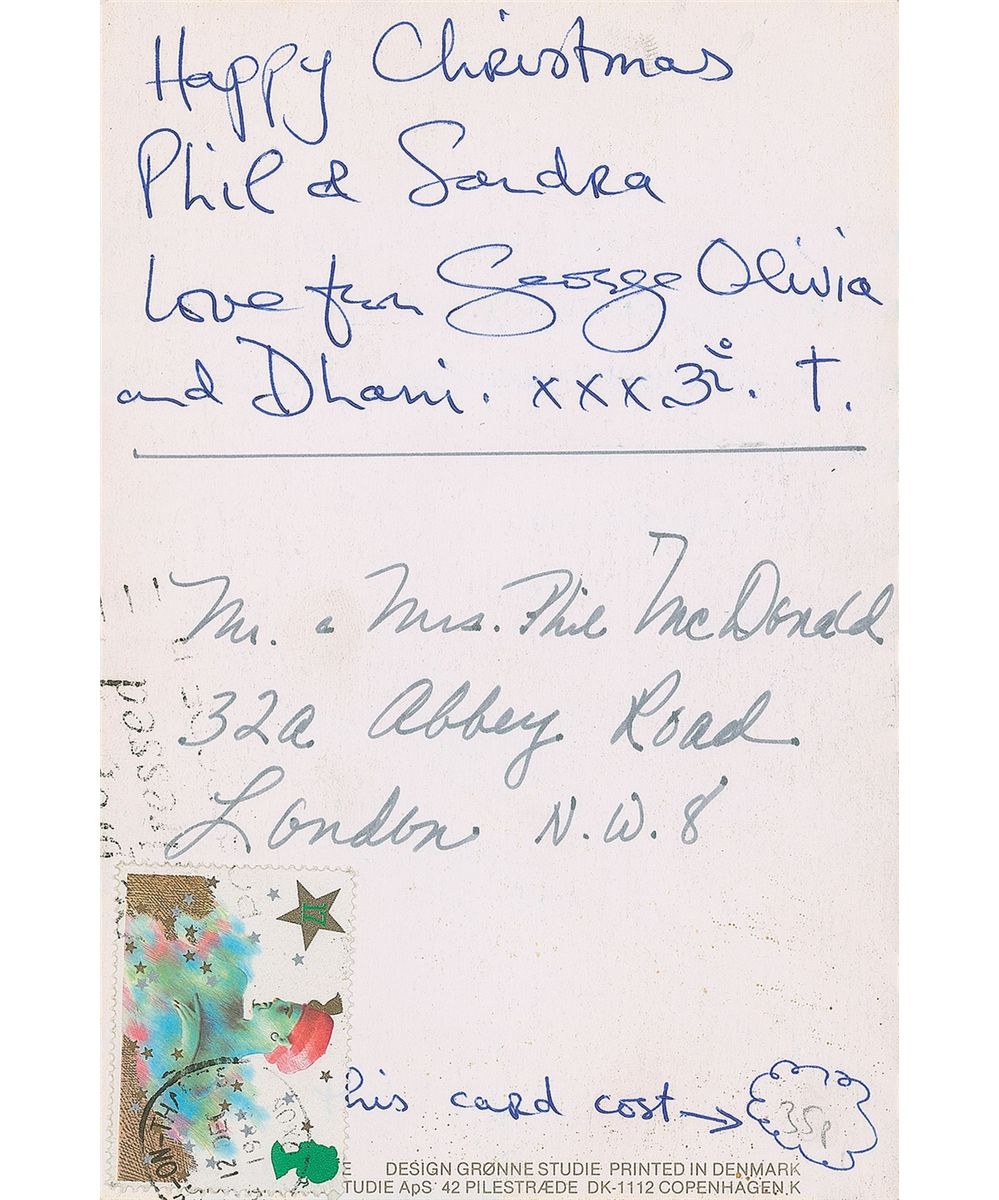 Happy Christmas
Phil & Sandra
Love from George Olivia
and Dhani. xxx ॐ. †.
Mr. & Mrs. Phil McDonald
32a Abbey Road
London N.W.8
17
12 DEC
19
his card cost → 35p
E DESIGN GRØNNE STUDIE PRINTED IN DENMARK
TUDIE ApS 42 PILESTRÆDE DK-1112 COPENHAGEN.K